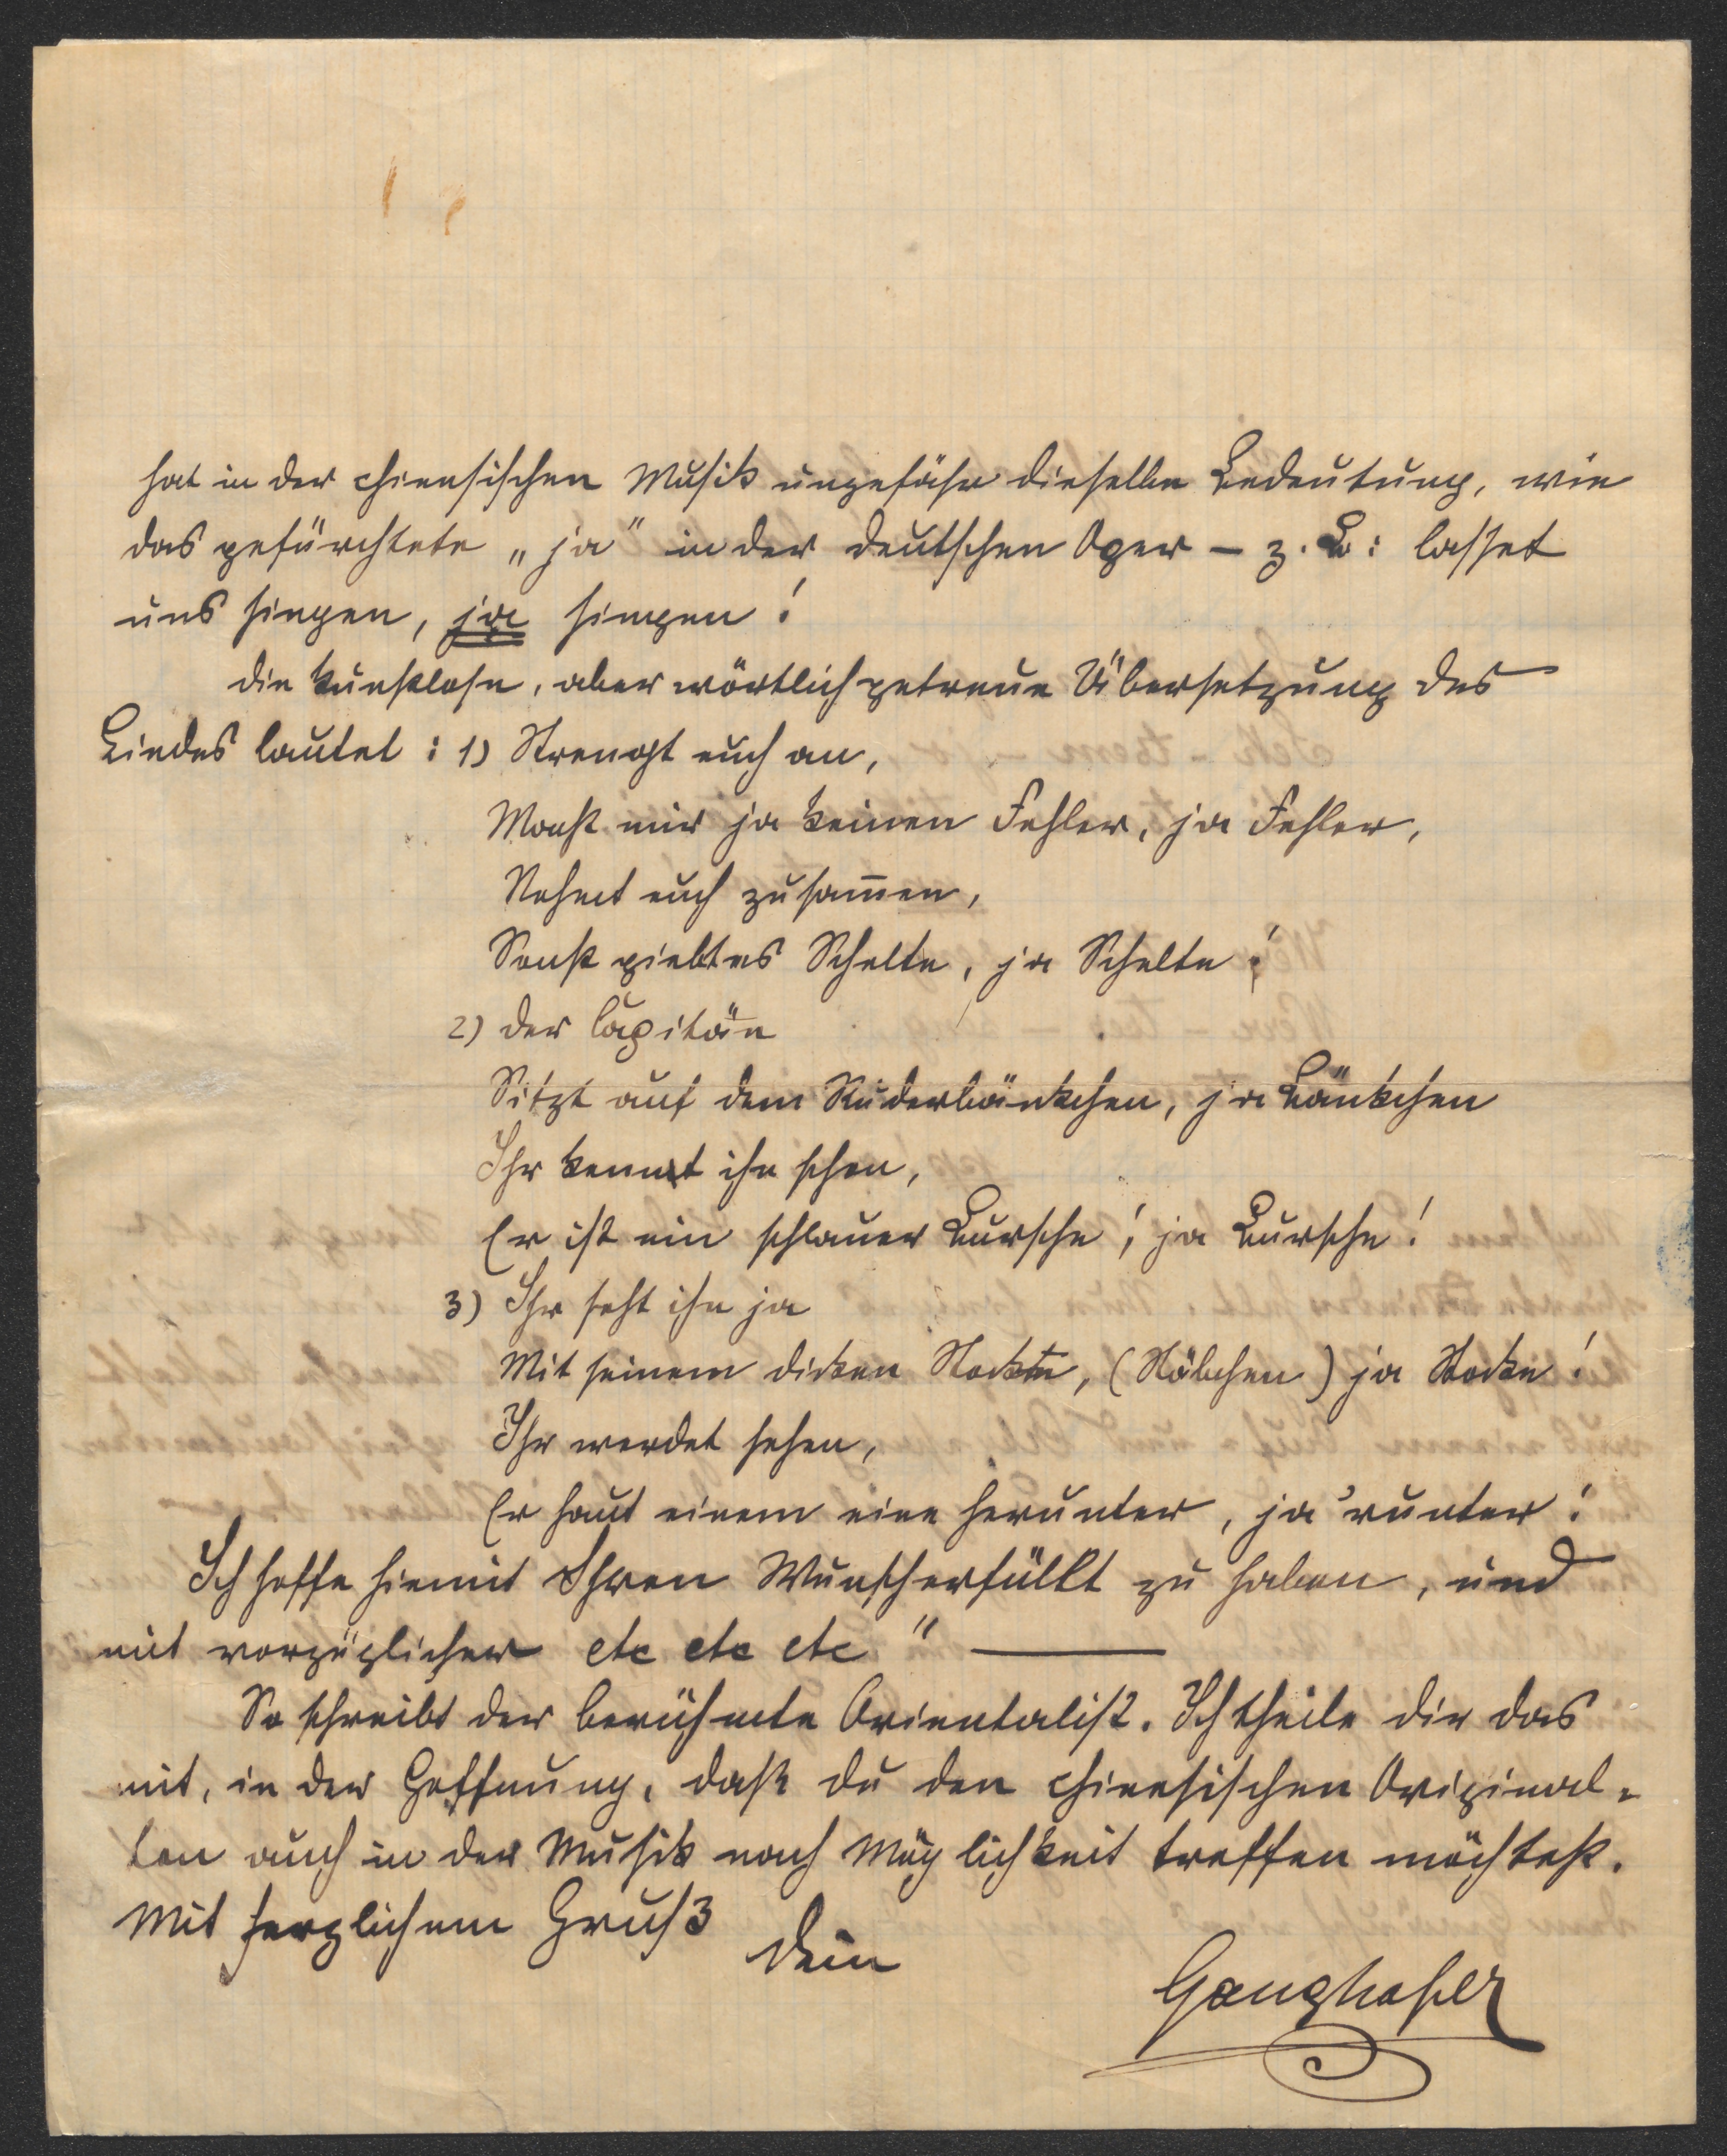 hat in der chinesischen Musik ungefähr dieselbe Bedeutung, wie
das gefürchtete „ja" in der deutschen Oper – z. B: lasset
uns singen, ja singen!
Die kunstlose, aber wörtlich getreue Übersetzung des
Liedes lautet: 1) Strengt euch an,
Macht mir ja keinen Fehler, ja Fehler,
Nehmt euch zusam̅en,
Sonst giebt es Schelte, ja Schelte!
2) Der Capitän
Sitzt auf dem Ruderbänkchen, ja Bänkchen
Ihr kennt ihn schon,
Er ist ein schlauer Bursche! ja Bursche!
3) Ihr seht ihn ja
Mit seinem dicken Stocke, (Stäbchen) ja Stocke!
Ihr werdet sehen,
Er haut einem eine herunter, ja 'runter!
Ich hoffe hiemit Ihren Wunsch erfüllt zu haben, und
mit vorzüglicher etc etc etc" —
So schreibt der berühmte Orientalist. Ich theile dir das
mit, in der Hoffnung, daß du den chinesischen Original-
ton auch in der Musik nach Möglichkeit treffen möchtest.
Mit herzlichem Gruß
Dein
Ganghofer